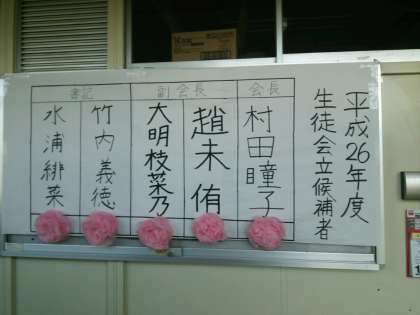 平成26年度
生徒会立候補者
会長
村田瞳子
副会長
趙未侑
大明枝菜乃
書記
竹内義徳
水浦緋菜